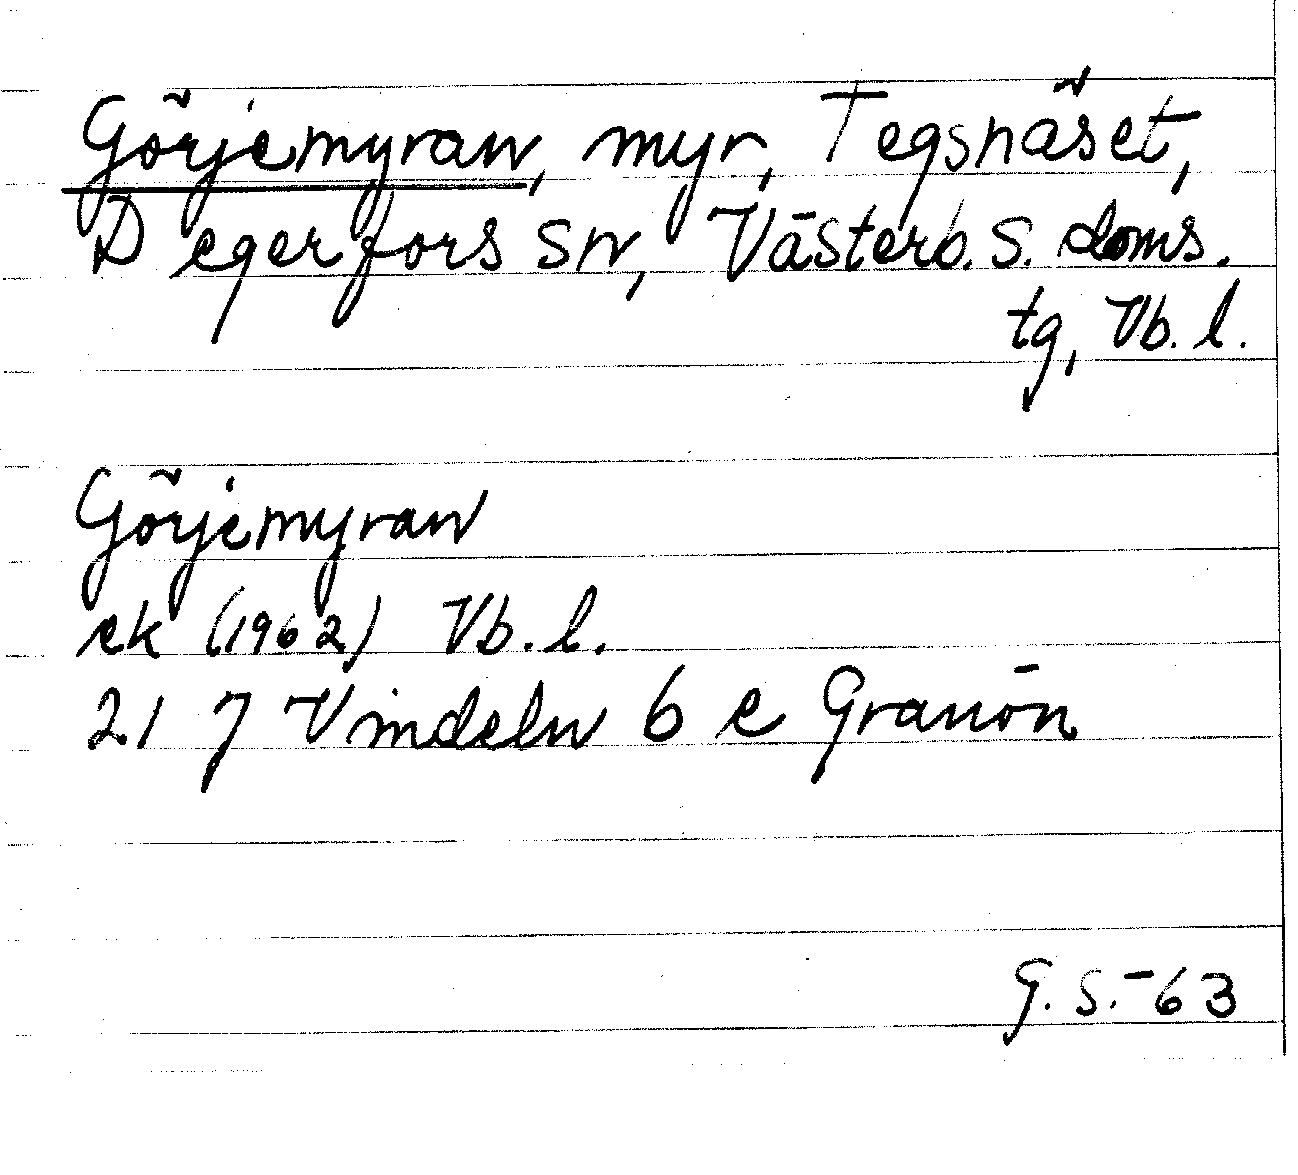 Görjemyran, myr, Tegsnäset,
Degerfors sn, Västerb. s. doms.
tg, Vb. l.
Görjemyran
ek (1962) Vb. l.
21 J Vindeln 6 e Granön
G. S. -63